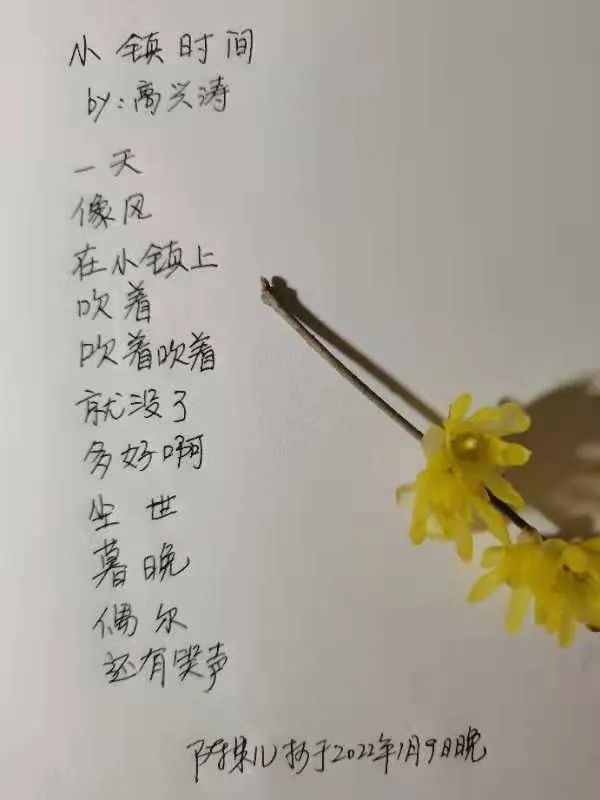 小镇时间
by:高兴涛
一天
像风
在小镇上
吹着
吹着吹着
就没了
多好啊
尘世
暮晚
偶尔
还有哭声
陈果儿抄于2022年1月9日晚